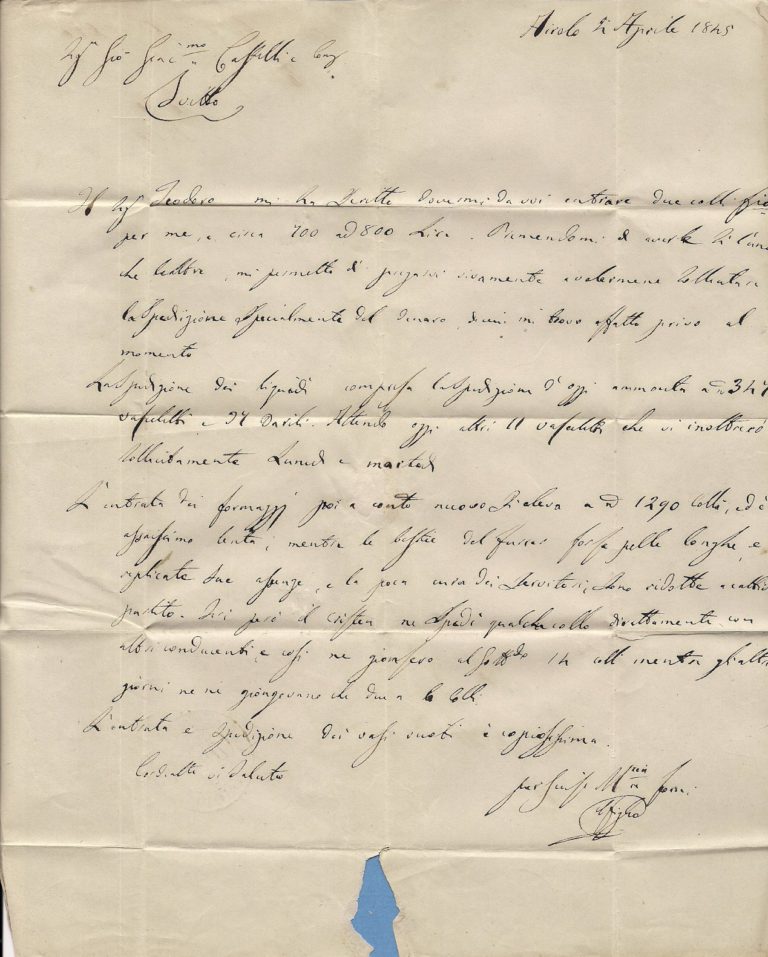 Airolo Aprile 1845
Castelli e
Svitto
Il Teodoro mi ha scritto dovermi da voi entrare due colli
per me, e circa 700 ad 800 Lire. Premendomi di avere
che l'altra, mi permetto di pregarvi vivamente a volermene
la spedizione specialmente del denaro, di cui mi trovo affatto privo al
momento
La spedizione dei liquidi compresa la spedizione d'oggi ammonta ad 347
vaseletti e 94 Barili. Attendo oggi altri 11 vaseletti che vi inoltrerò
sollecitamente Lunedì e martedì
L'entrata dei formaggi poi a conto nuovo rileva a ad 1290 colli, ed è
assaissimo lenta; mentre le bestie del forse pelle longhe, e
replicate sue e la poca cura dei Servitori, sono ridotte a cattivo
partito. Ieri però il cristen ne spedì qualche collo direttamente con
altri conducenti, e così ne giunsero al 14 colli mentre gli altri
giorni ne giongevano che due a 6 colli
L'entrata e spedizione dei vasi vuoti è copiosissima.
vi saluto
per Forni
figlio